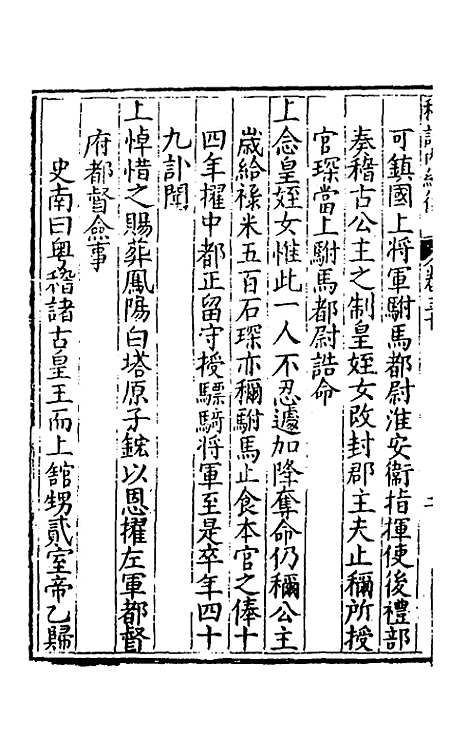 可鎮國上將軍駙馬都尉淮安衞指揮使後禮部
奏稽古公主之制皇姪女改封郡主夫止稱所授
官琛當上駙馬都尉誥命
上念皇姪女惟此一人不忍遽加降奪命仍稱公主
歲給祿米五百石琛亦稱駙馬止食本官之俸十
四年擢中都正留守授驃騎將軍至是卒年四十
九訃聞
上悼惜之賜葬鳳陽白塔原子鋐以恩擢左軍都督
府都督僉事
史南曰粤稽諸古皇王而上舘甥貳室帝乙歸